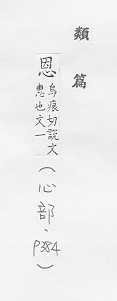 類篇
恩烏痕切說文
惠也文一
(心部、P384)